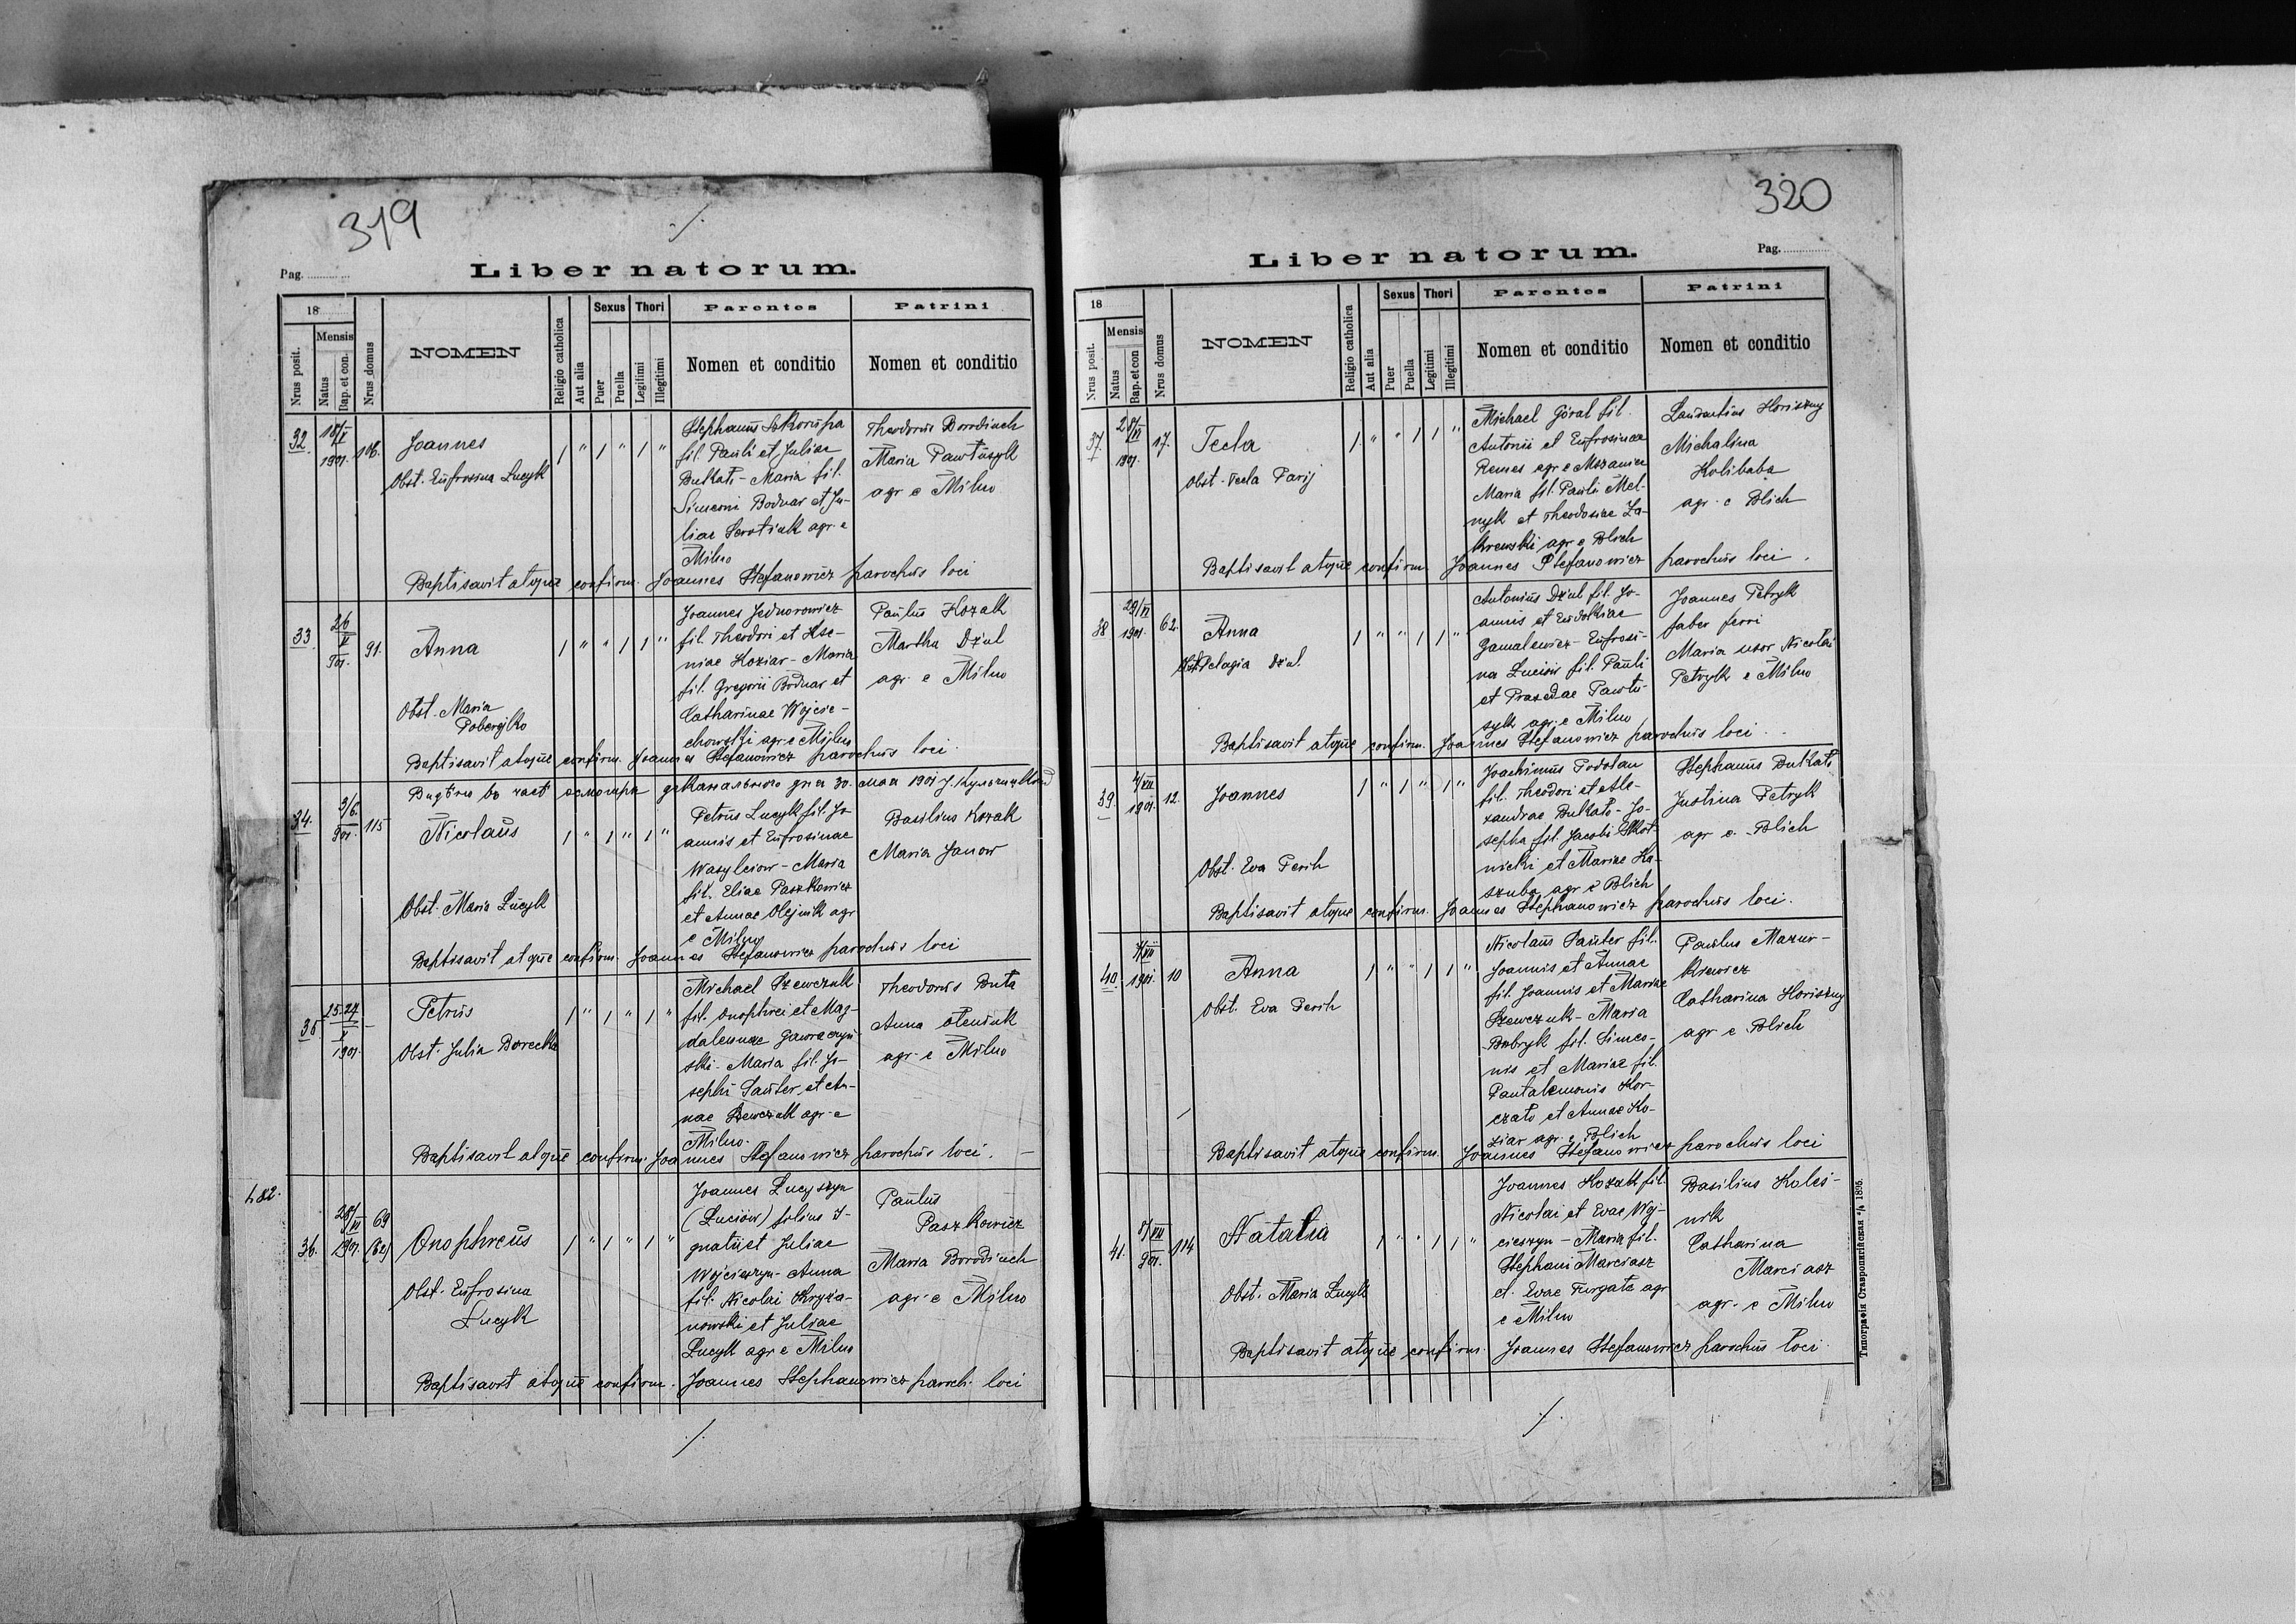 319
Liber natorum.
Pag.
18
Nrus posit.
Mensis
Natus
Bap. et con.
Nrus domus
NOMEN
Religio catholica
Aut alia
Sexus
Puer
Puella
Thori
Legitimi
Illegitimi
Parentes
Nomen et conditio
Patrini
Nomen et conditio
32
18/V
1901.
106.
Joannes
Obst. Eufrosina Lucyk
1 " 1 " 1 "
Stephanus Sckorupa
fil. Pauli et Juliae
Butkato - Maria fil.
Simeoni Bodnar et Ju-
liae Serotiuk agr. e
Milno
Theodorus Borodiuch
Maria Pawtusyk
agr e Milno
Baptisavit atque confirm. Joannes Stefanowicz parochus loci
33
26
V
901.
91.
Anna
Obst. Maria
Poberejko
1 " " 1 1 "
Joannes Jednorowicz
fil. Theodori et Kse-
niae Koziar - Maria
fil. Gregorii Bodnar et
Catharinae Wojcie-
chowski agr e Milno
Paulus Kozak
Martha Dżul
agr. e Milno
Baptisavit atque confirm. Joannes Stefanowicz parochus loci.
дня 30. мая 1901
34.
3/6.
901.
115
Nicolaus
Obst. Maria Lucyk
1 " 1 " 1 "
Petrus Lucyk fil. Jo-
annis et Eufrosinae
Wasylciow - Maria
fil. Eliae Paszkowicz
et Annae Olejnik agr
e Milno
Basilius Kozak
Maria Janow
Baptisavit atque confirm. Joannes Stefanowicz parochus loci
35
25. 27
X
1901.
Petrus
Obst. Julia Borecka
1 " 1 " 1 "
Michael Szewczuk
fil. Onophrei et Mag-
dalennae Gawreczyń
ski - Maria fil. Jo-
sephi Sauter et An-
nae Szewczuk agr. e
Milno.
Theodorus Buta
Anna Oleniuk
agr. e Milno
Baptisavit atque confirm. Joannes Stefanowicz parochus loci.
482.
36.
28/XI
1901.
69
Onophreus
Obst. Eufrosina
Lucyk
1 " 1 " 1 "
Joannes Lucyszyn
(Luciow) filius I-
gnatii et Juliae
Wojcieszyn - Anna
fil. Nicolai Kryża-
nowski et Juliae
Lucyk agr e Milno
Paulus
Paszkowicz
Maria Borodiuch
agr. e Milno
Baptisavit atque confirm. Joannes Stephanowicz paroch. loci
320
Liber natorum.
Pag.
18
Nrus posit.
Mensis
Natus
Bap. et con
Nrus domus
NOMEN
Religio catholica
Aut alia
Sexus
Puer
Puella
Thori
Legitimi
Illegitimi
Parentes
Nomen et conditio
Patrini
Nomen et conditio
37.
28/XI
1901.
17.
Tecla
Obst. Tecla Parij
1 " " 1 1 "
Michael Góral fil.
Antonii et Eufrosinae
Remes agr e Mszaniec
Maria fil. Pauli Mel-
nyk et Theodosiae Za-
krewski agr e Blich
Laurentius Horiszny
Michalina
Kolibaba
agr. e Blich
Baptisavit atque confirm. Joannes Stefanowicz parochus loci.
38
29/XI
1901.
62.
Anna
Obst. Pelagia Dżul.
1 " " 1 1 "
Antonius Dżul fil. Jo-
annis et Eudokiae
Gamalewicz - Eufrosi-
na Luciow fil. Pauli
et Praxedae Pawtu-
syk agr. e Milno
Joannes Petryk
faber ferri
Maria uxor Nicolai
Petryk e Milno
Baptisavit atque confirm. Joannes Stefanowicz parochus loci.
39.
4/XII
1901.
12.
Joannes
Obst. Eva Perih
1 " 1 " 1 "
Joachimus Podolan
fil. Theodori et Ale-
xandrae Butkato - Jo-
sepha fil. Jacobi Skot-
nicki et Mariae Ka-
szuba agr e Blich
Stephanus Butkato
Justina Petryk
agr e. Blich
Baptisavit atque confirm. Joannes Stephanowicz parochus loci.
40.
4/XII
1901.
10
Anna
Obst. Eva Perih
1 " " 1 1 "
Nicolaus Sauter fil.
Joannis et Annae
fil. Joannis et Mariae
Szewczuk - Maria
Bobryk fil. Simeo-
nis et Mariae fil.
Pantalemonis Kor-
czato et Annae Ko-
ziar agr. e Blich
Paulus Mazur-
kiewicz
Catharina Horiszny
agr e Blich
Baptisavit atque confirm. Joannes Stefanowicz parochus loci
41.
5/XII
901.
114
Natalia
Obst. Maria Lucyk
1 " " 1 1 "
Joannes Kozak fil.
Nicolai et Evae Woj-
cieszyn - Maria fil.
Stephani Marciasz
et. Evae Furgata agr
e Milno
Basilius Koles-
nik
Catharina
Marciasz
agr. e Milno
Baptisavit atque confirm. Joannes Stefanowicz parochus loci.
Типографія Ставропигійская 1896.